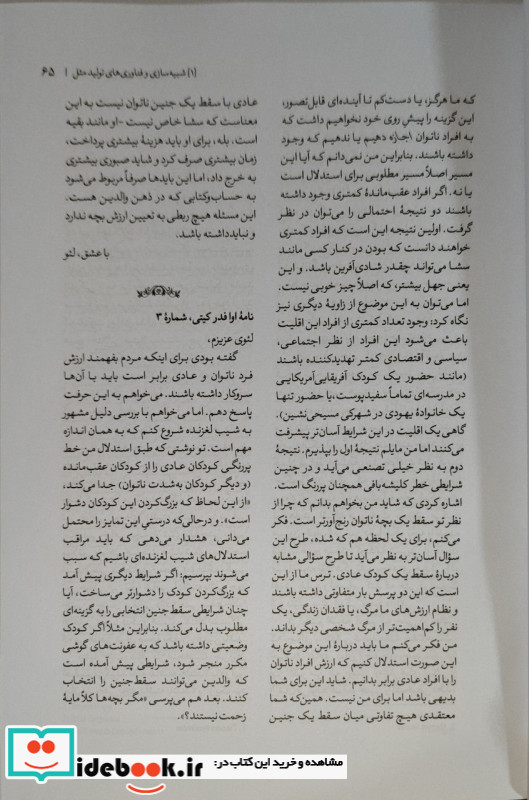 (۱) شبیه‌سازی و فناوری‌های تولید مثل | ۶۵
که ما هرگز، یا دست‌کم تا آینده‌ای قابل‌تصور،
این گزینه را پیش روی خود نخواهیم داشت که
به افراد ناتوان «جا» دهیم یا ندهیم که وجود
داشته باشند. بنابراین من نمی‌دانم که آیا این
مسیر اصلاً مسیر مطلوبی برای استدلال است
یا نه. اگر افراد عقب‌ماندهٔ کمتری وجود داشته
باشند دو نتیجهٔ احتمالی را می‌توان در نظر
گرفت. اولین نتیجه این است که افراد کمتری
خواهند دانست که بودن در کنار کسی مانند
سشا می‌تواند چقدر شادی‌آفرین باشد. و این
یعنی جهل بیشتر، که اصلاً چیز خوبی نیست.
اما می‌توان به این موضوع از زاویهٔ دیگری نیز
نگاه کرد: وجود تعداد کمتری از افراد این اقلیت
باعث می‌شود این افراد از نظر اجتماعی،
سیاسی و اقتصادی کمتر تهدیدکننده باشند
(مانند حضور یک کودک آفریقایی‌آمریکایی
در مدرسه‌ای تماماً سفیدپوست، یا حضور تنها
یک خانوادهٔ یهودی در شهرکی مسیحی‌نشین).
گاهی یک اقلیت در این شرایط آسان‌تر پیشرفت
می‌کنند اما من مایلم نتیجهٔ اول را بپذیرم. نتیجهٔ
دوم به نظر خیلی تصنعی می‌آید و در چنین
شرایطی خطر کلیشه‌بافی همچنان پررنگ است.
اشاره کردی که شاید من بخواهم بدانم که چرا از
نظر تو سقط یک بچهٔ ناتوان رنج‌آورتر است. فکر
می‌کنم، برای یک لحظه هم که شده، طرح این
سؤال آسان‌تر به نظر می‌آید تا طرح سؤالی مشابه
دربارهٔ سقط یک کودک عادی. ترس ما از این
است که این دو پرسش بار متفاوتی داشته باشند
و نظام ارزش‌های ما مرگ، یا فقدان زندگی، یک
نفر را کم‌اهمیت‌تر از مرگ شخصی دیگر بداند.
من فکر می‌کنم ما باید دربارهٔ این موضوع به
این صورت استدلال کنیم که ارزش افراد ناتوان
را با افراد عادی برابر بدانیم. شاید این برای شما
بدیهی باشد اما برای من نیست. همین‌که شما
معتقدی هیچ تفاوتی میان سقط یک جنین
عادی با سقط یک جنین ناتوان نیست به این
معناست که سشا خاص نیست – او مانند بقیه
است. بله، برای او باید هزینهٔ بیشتری پرداخت،
زمان بیشتری صرف کرد و شاید صبوری بیشتری
به خرج داد، اما این بایدها صرفاً مربوط می‌شود
به حساب‌وکتابی که در ذهن والدین هست.
این مسئله هیچ ربطی به تعیین ارزش بچه ندارد
و نباید داشته باشد.
با عشق، لئو
نامهٔ اوا فدر کیتی، شمارهٔ ۳
لئوی عزیزم،
گفته بودی برای اینکه مردم بفهمند ارزش
فرد ناتوان و عادی برابر است باید با آن‌ها
سروکار داشته باشند. می‌خواهم به این حرفت
پاسخ دهم. اما می‌خواهم با بررسی دلیل مشهور
به شیب لغزنده شروع کنم که به همان اندازه
مهم است. تو نوشتی که طبق استدلال من خط
پررنگی کودکان عادی را از کودکان عقب‌مانده
(و دیگر کودکان به‌شدت ناتوان) جدا می‌کند،
«از این لحاظ که بزرگ‌کردن این کودکان دشوار
است». و درحالی‌که درستیِ این تمایز را محتمل
می‌دانی، هشدار می‌دهی که باید مراقب
استدلال‌های شیب لغزنده‌ای باشیم که سبب
می‌شوند بپرسیم: اگر شرایط دیگری پیش آمد
که بزرگ‌کردن کودک را دشوارتر می‌ساخت، آیا
چنان شرایطی سقط جنین انتخابی را به گزینه‌ای
مطلوب بدل می‌کند. بنابراین مثلاً اگر کودک
وضعیتی داشته باشد که به عفونت‌های گوشی
مکرر منجر شود، شرایطی پیش آمده است
که والدین می‌توانند سقط‌جنین را انتخاب
کنند. بعد هم می‌پرسی «مگر بچه‌ها کلاً مایهٔ
زحمت نیستند؟».
مشاهده و خرید این کتاب در:
idebook.ir